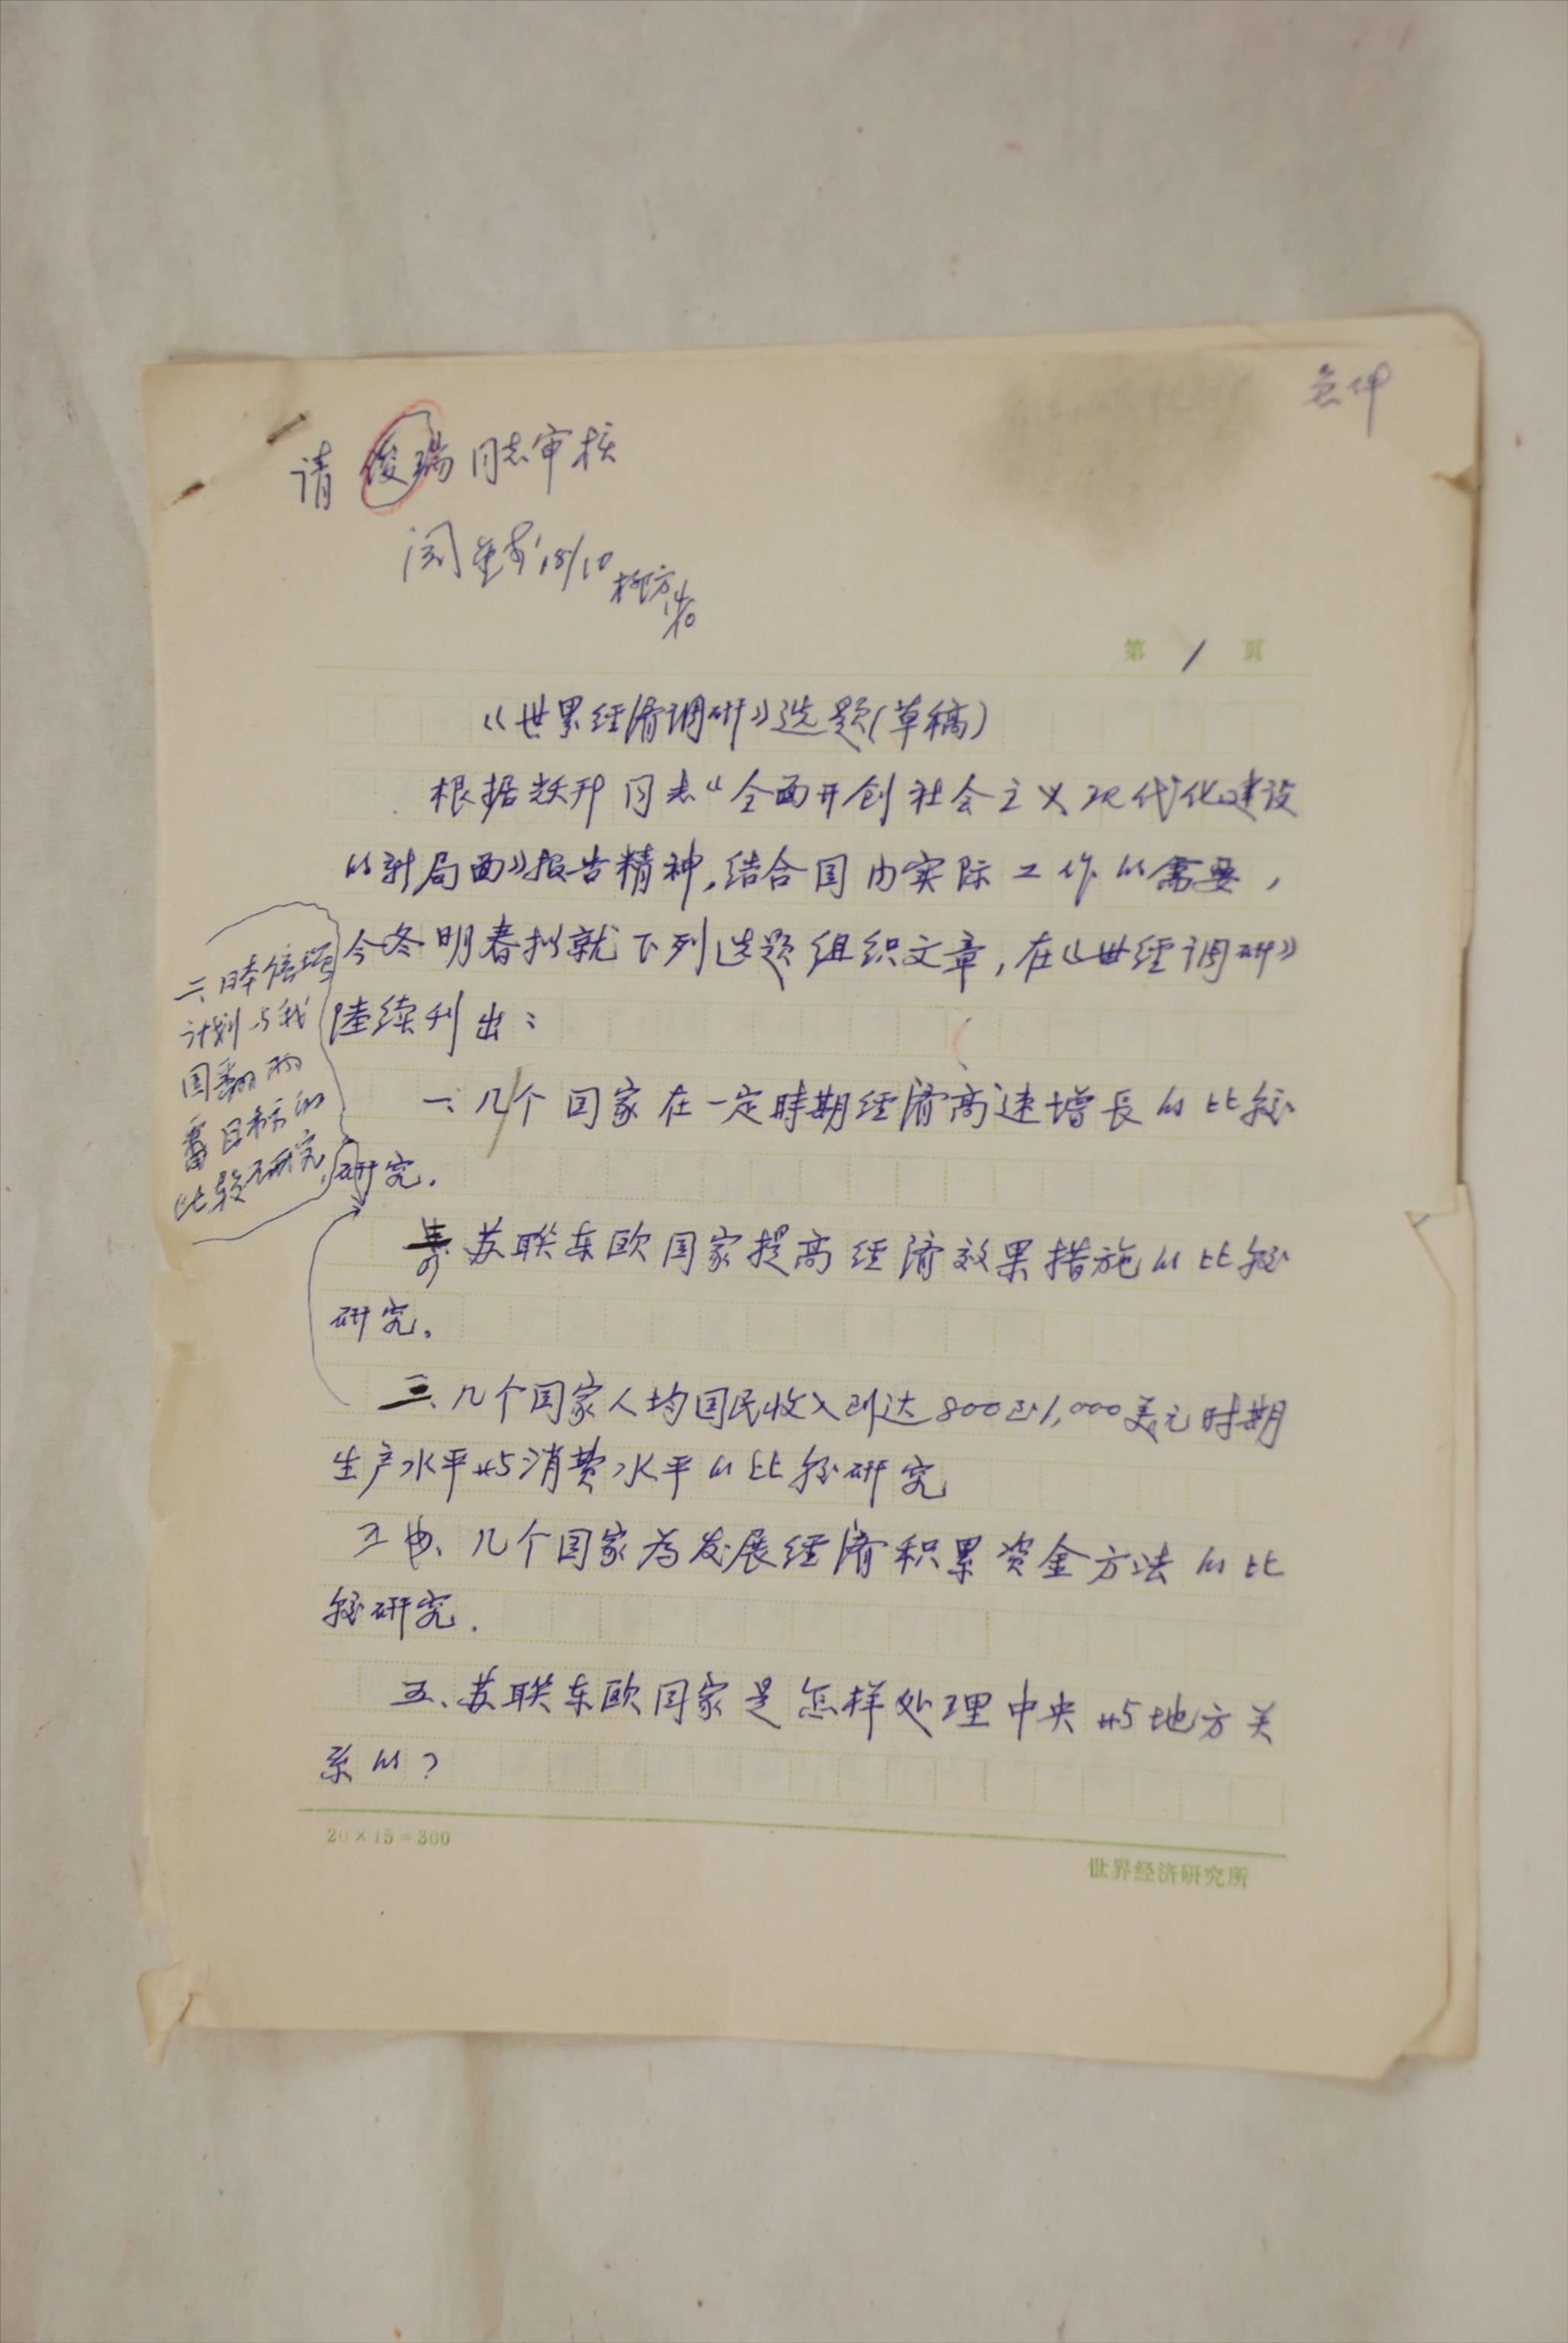 请俊瑞同志审核
18/10
第 1 页
《世界经济调研》选题(草稿)
根据耀邦同志“全面开创社会主义现代化建设
的新局面》报告精神,结合国内实际工作的需要,
今冬明春拟就下列选题组织文章,在《世经调研》
陆续刊出:
一、几个国家在一定时期经济高速增长的比较
研究.
二、日本倍增
计划与我
国翻两
番目标的
比较研究.
苏联东欧国家提高经济效果措施的比较
研究。
三、几个国家人均国民收入到达800到1,000美元时期
生产水平与消费水平的比较研究
几个国家为发展经济积累资金方法的比
较研究.
五、苏联东欧国家是怎样处理中央与地方关
系的?
20×15=300
世界经济研究所